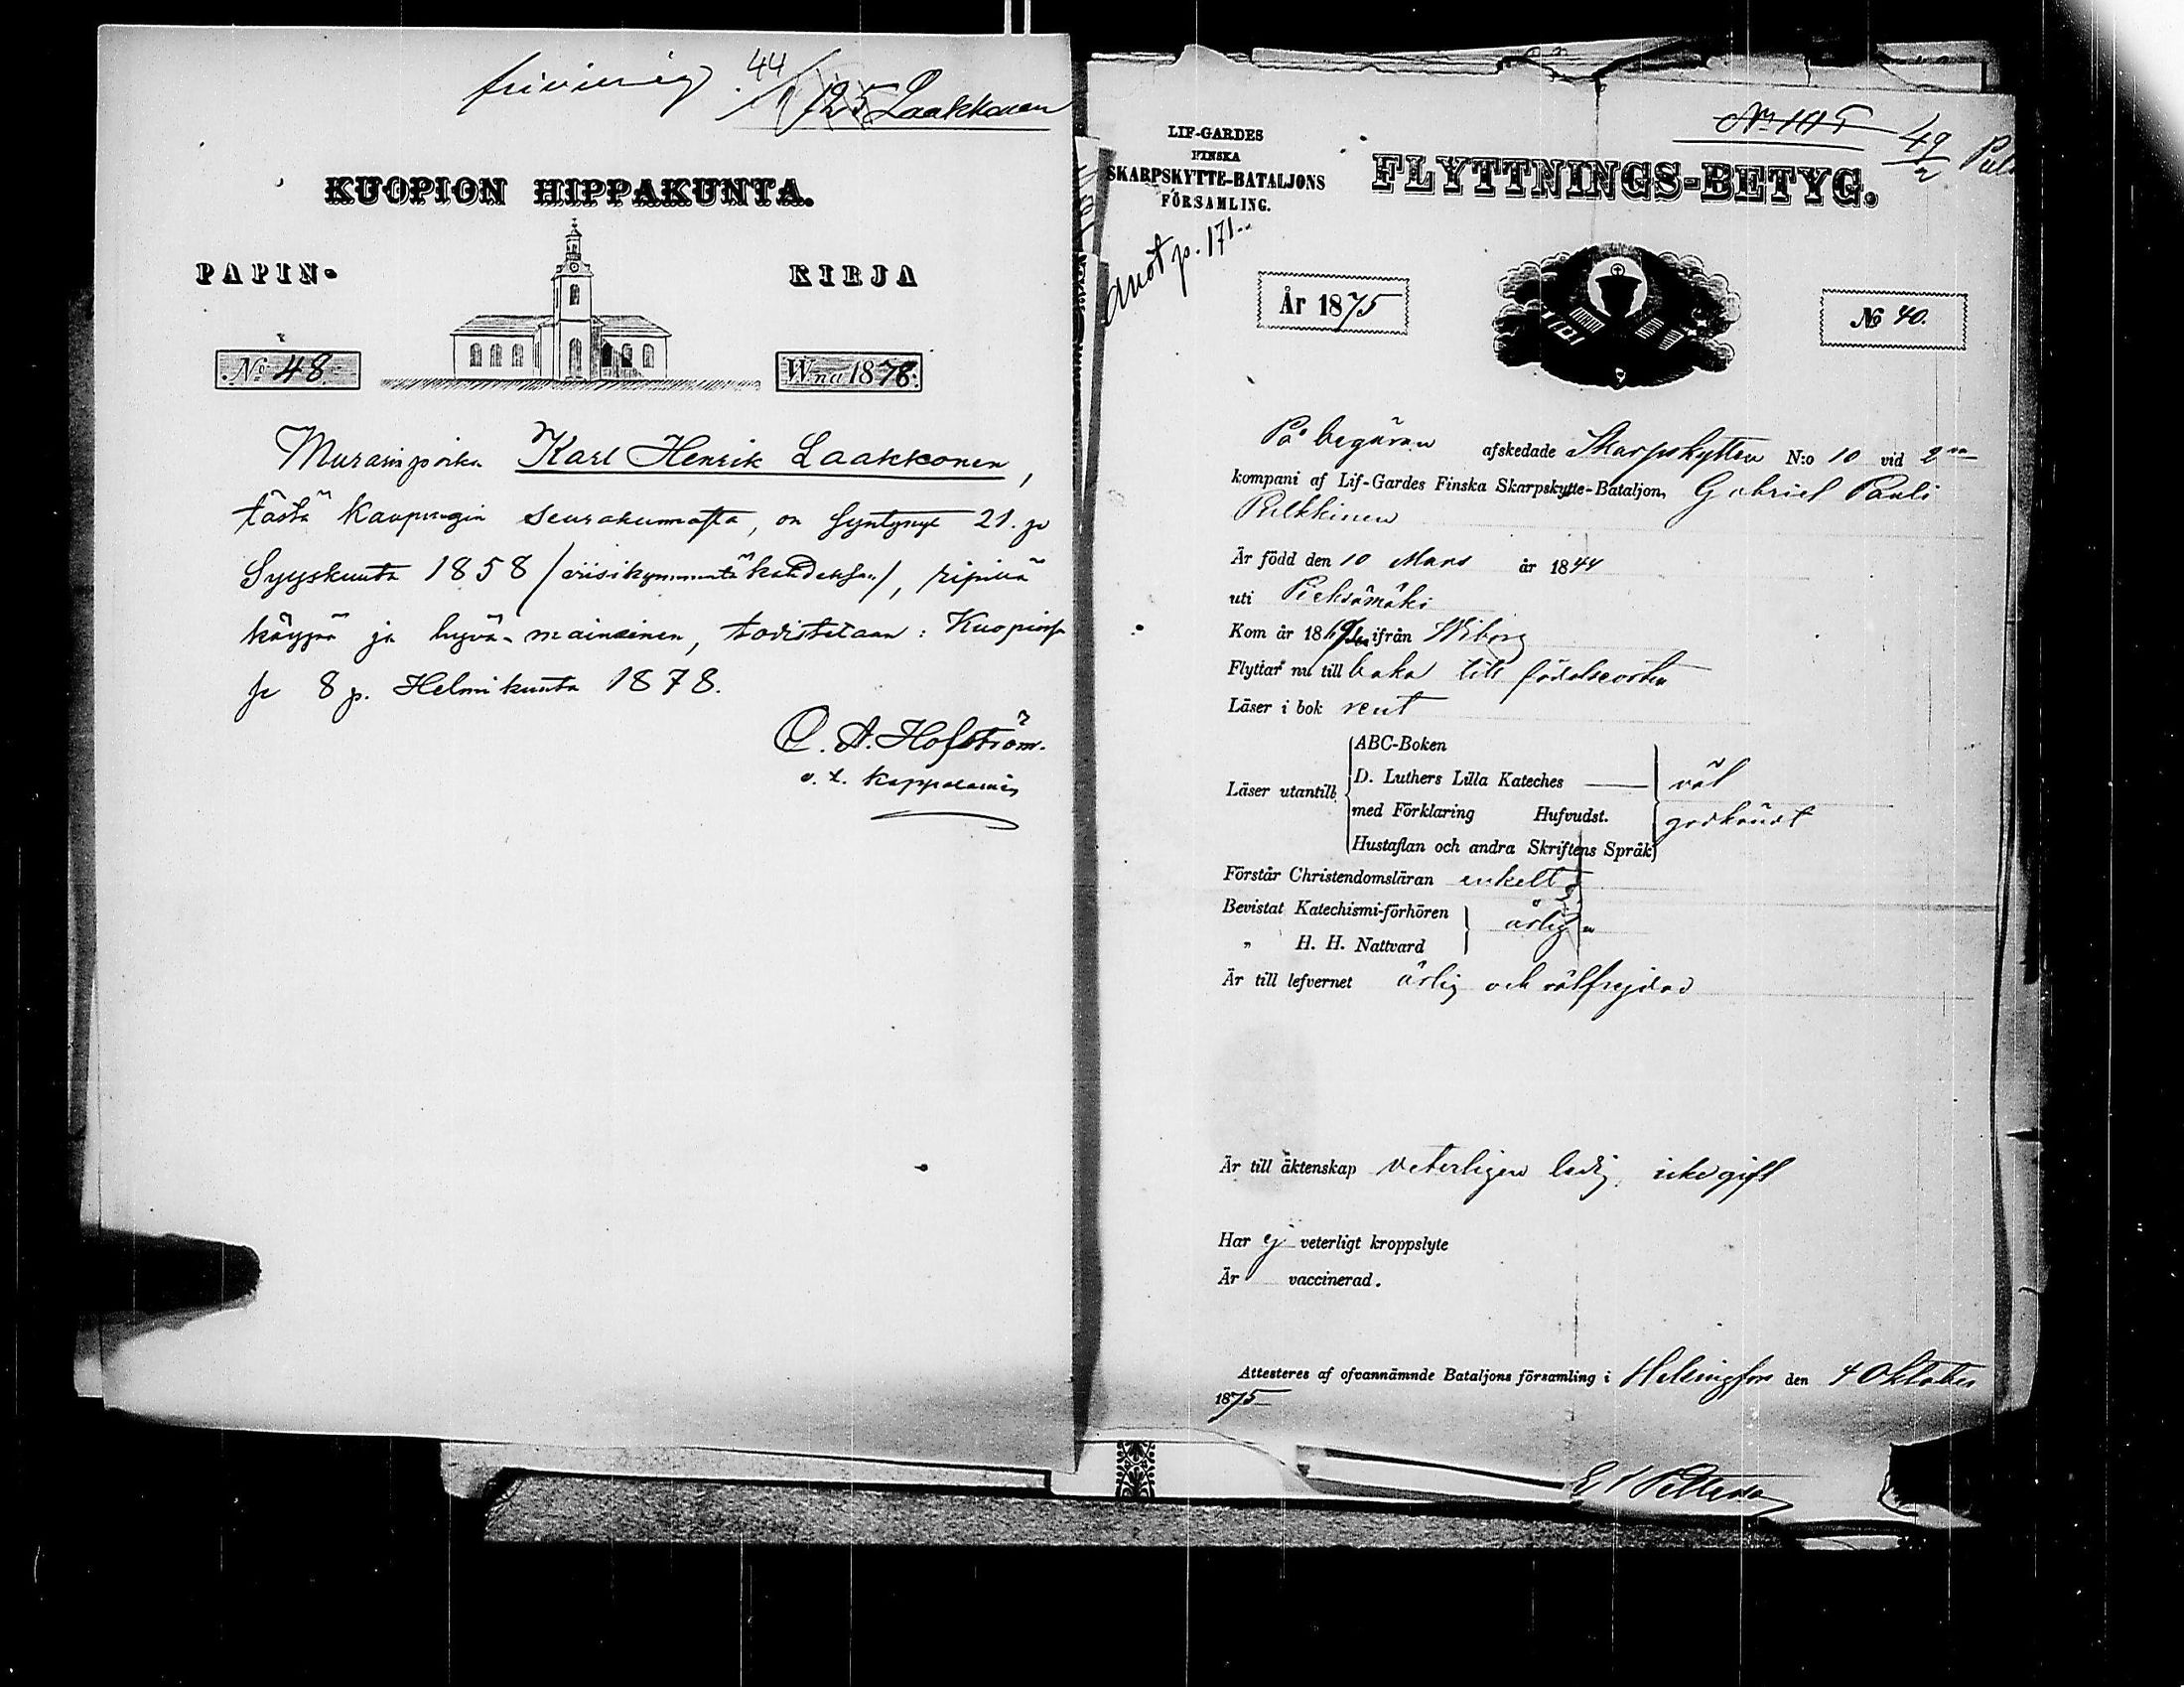 44
125 Laakkonen
KUOPION HIPPAKUNTA.
PAPIN- KIRJA
No 48. Wna 1878.
Murarinpoika Karl Henrik Laakkonen,
tästä Kaupungin seurakunnasta, on syntynyt 21. p
Syyskuuta 1858 /viisikymmentäkahdeksan/, ripillä
käypä ja hyvä-maineinen, todistetaan: Kuopiossa
8 p. Helmikuuta 1878.
O. A. Hofström.
v. t. Kappalainen
No 105
49/2
LIF-GARDES
FINSKA
SKARPSKYTTE-BATALJONS
FÖRSAMLING.
FLYTTNINGS-BETYG.
anot p. 171.
År 1875
No 40.
På begäran afskedade Skarpskytten N:o 10 vid 2
kompani af Lif-Gardes Finska Skarpskytte-Bataljon, Gabriel Pauli
Pulkkinen
Är född den 10 Mars år 1844
uti Pieksämäki
Kom år 18 ifrån Wiborg
Flyttar nu till baka till födelseorten
Läser i bok rent
Läser utantill
ABC-Boken
D. Luthers Lilla Kateches väl
med Förklaring Hufvudst. godkändt
Hustaflan och andra Skriftens Språk
Förstår Christendomsläran enkelt
Bevistat Katechismi-förhören årligen
„ H. H. Nattvard
Är till lefvernet ärlig och välfrejdad
Är till äktenskap veterligen ledig, icke gift
Har ej veterligt kroppslyte
Är vaccinerad.
Attesteres af ofvannämnde Bataljons församling i Helsingfors den 4 Oktober
1875